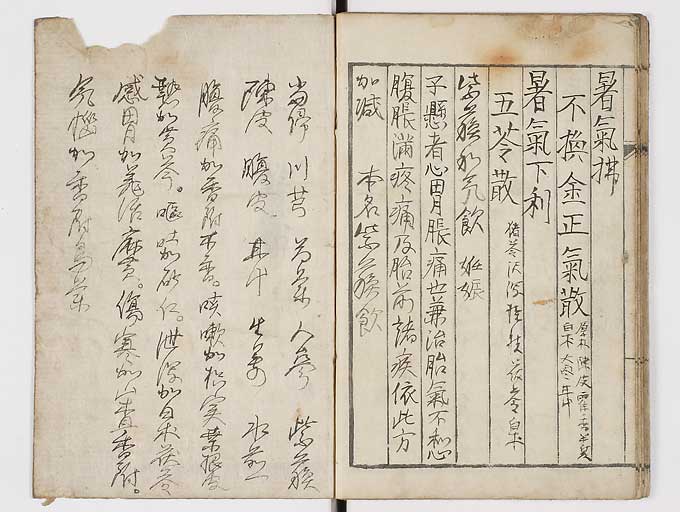 暑氣拂
不換金正氣散 厚朴 陳皮 藿香 半夏 白朮
暑氣下利
五苓散 猪苓 沢瀉 桂枝 茯苓 白朮
紫蘇和気飲 妊娠
子懸者心胃脹痛也兼治胎氣不和心
腹脹滿疼痛及胎前諸疾依此方
加減 本名紫蘇飲
當帰 川芎 芍薬 人参 紫蘇
陳皮 腹皮 甘 生姜 水煎
腹痛加香附木香。咳嗽加枳実桑根皮
熱加黄芩。嘔吐加砂仁。泄瀉加白朮茯苓
感冒加羌活麻黄。傷寒加山香附。
気悩加香附烏薬